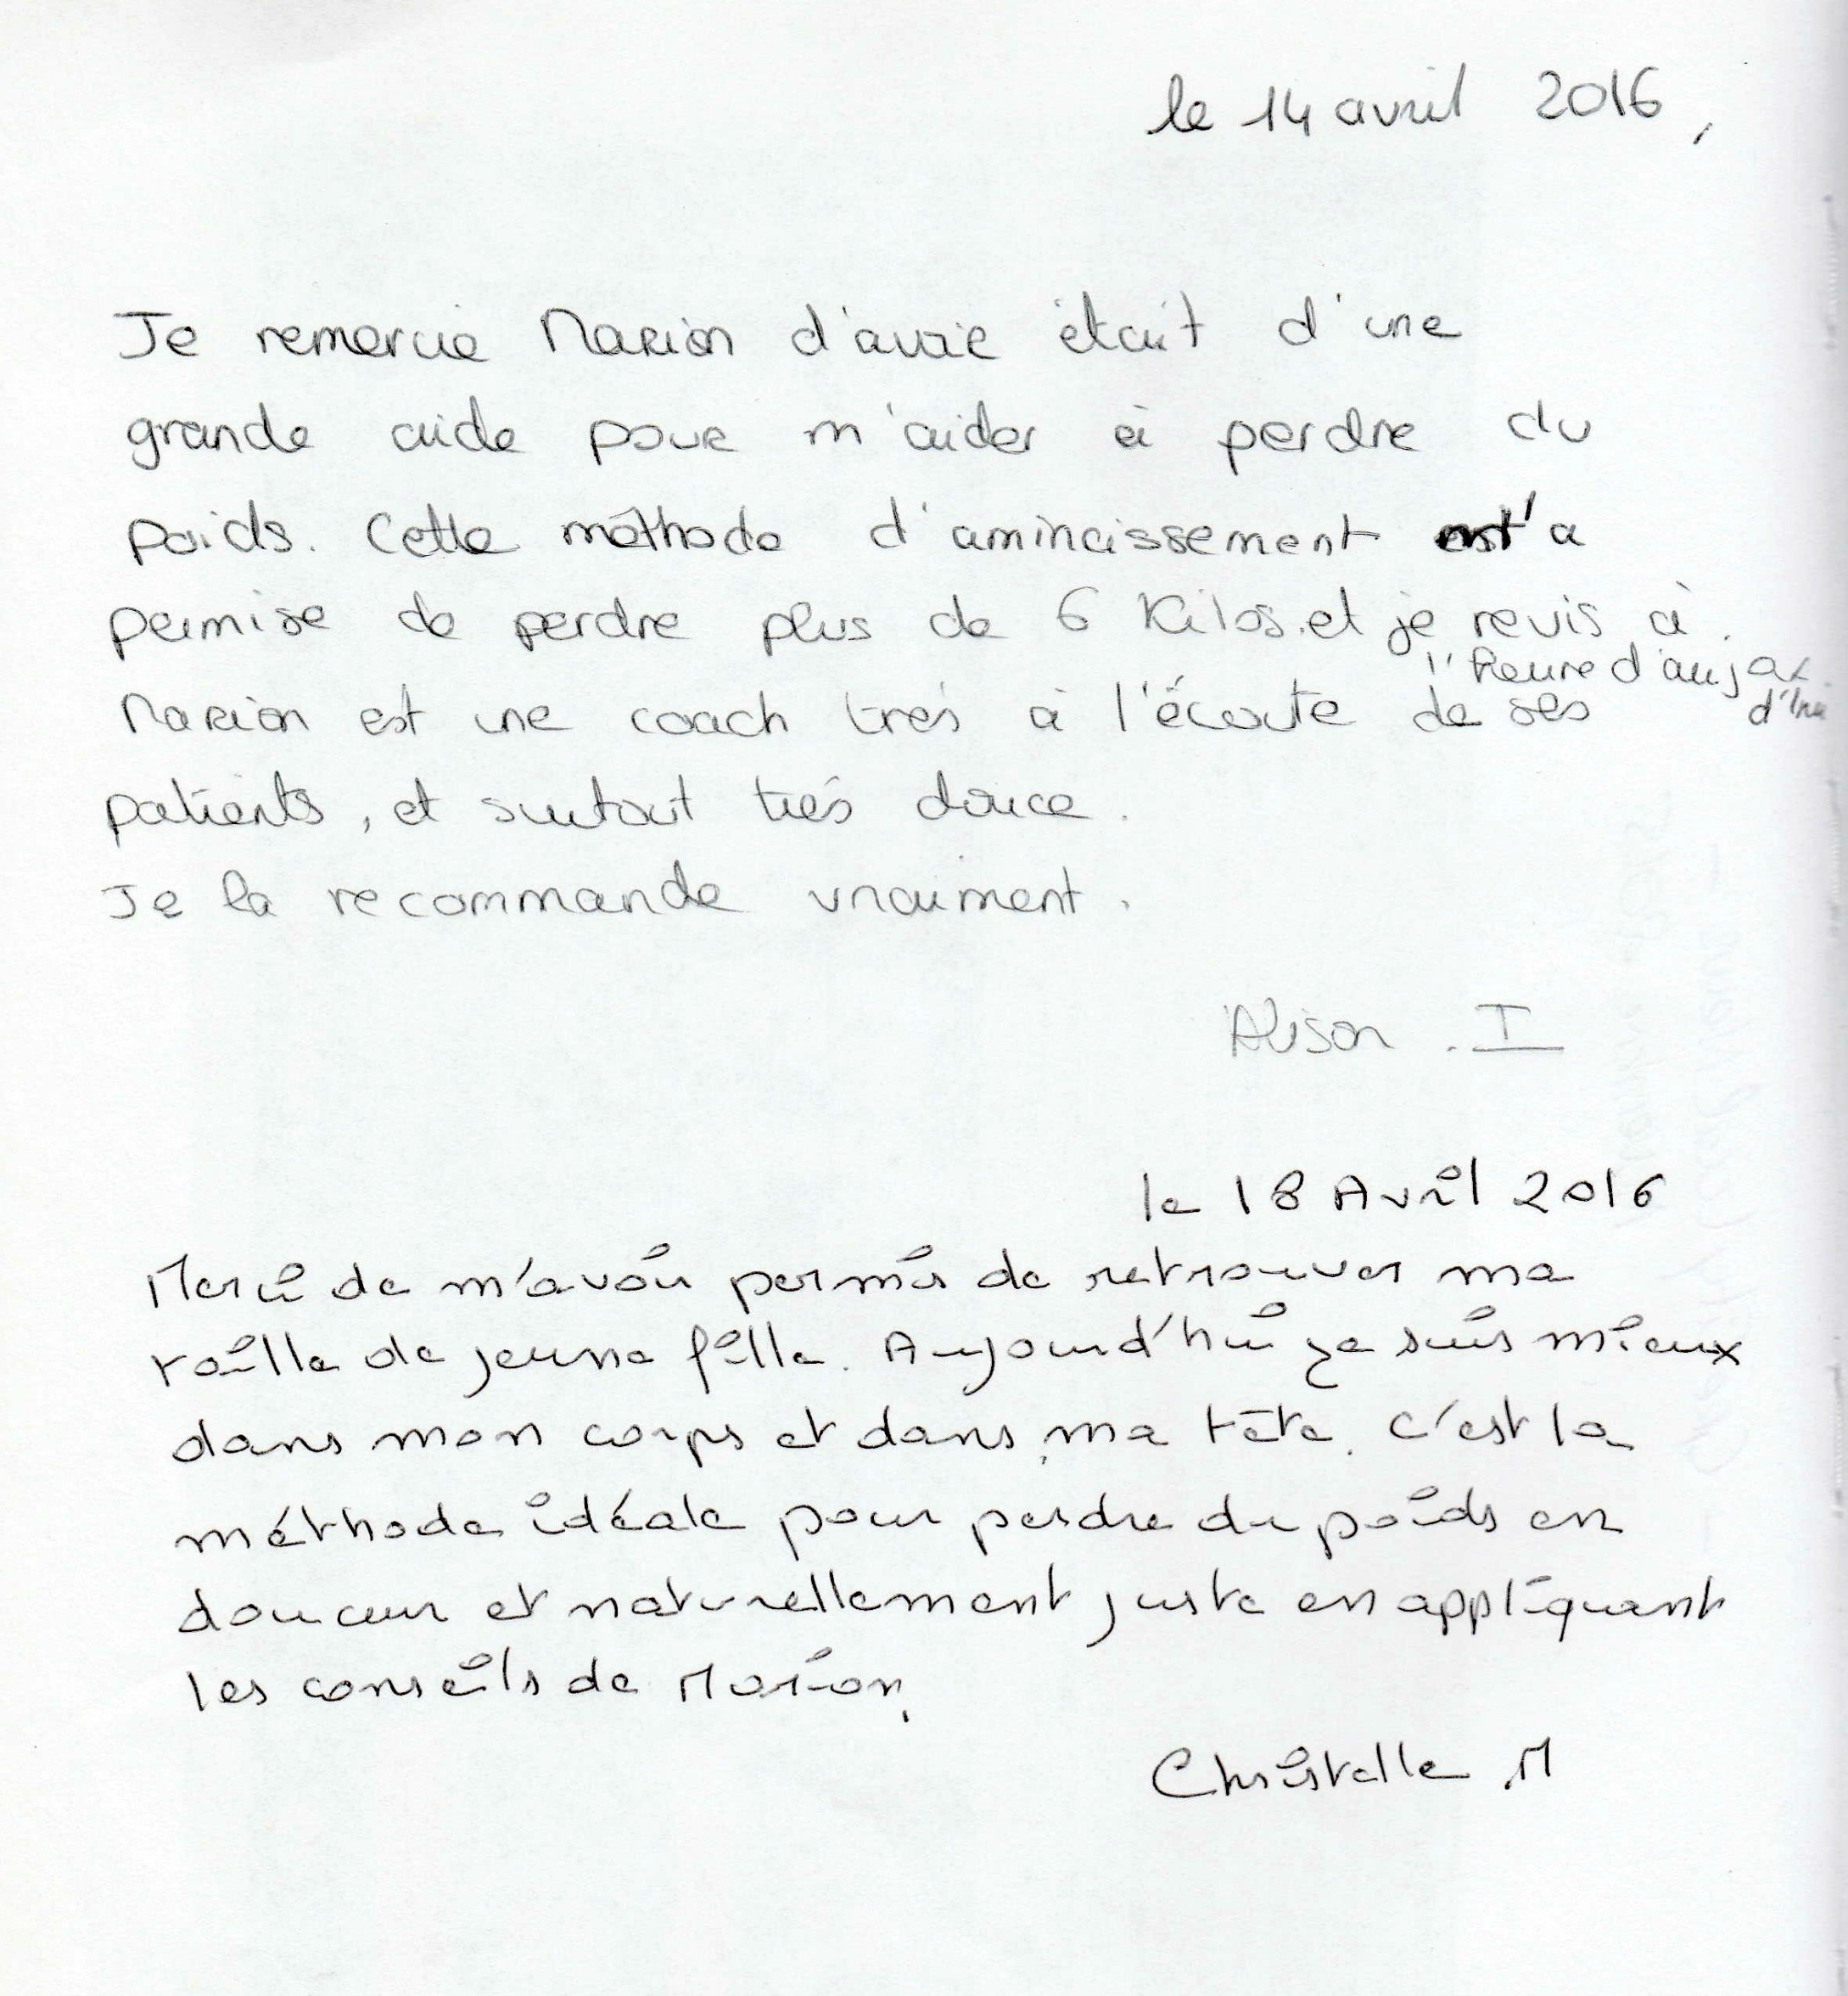 le 14 avril 2016,
Je remercie Marion d'avoir était d'une
grande aide pour m'aider à perdre du
poids. Cette méthode d'amincissement m'a
permise de perdre plus de 6 Kilos. et je revis à
l'heure d'aujour
d'hui
Marion est une coach très à l'écoute de ses
patients, et surtout très douce.
Je la recommande vraiment.
Alison . I
le 18 Avril 2016
Merci de m'avoir permis de retrouver ma
taille de jeune fille. Aujourd'hui je suis mieux
dans mon corps et dans ma tête. C'est la
méthode idéale pour perdre du poids en
douceur et naturellement juste en appliquant
les conseils de Marion.
Christelle .M